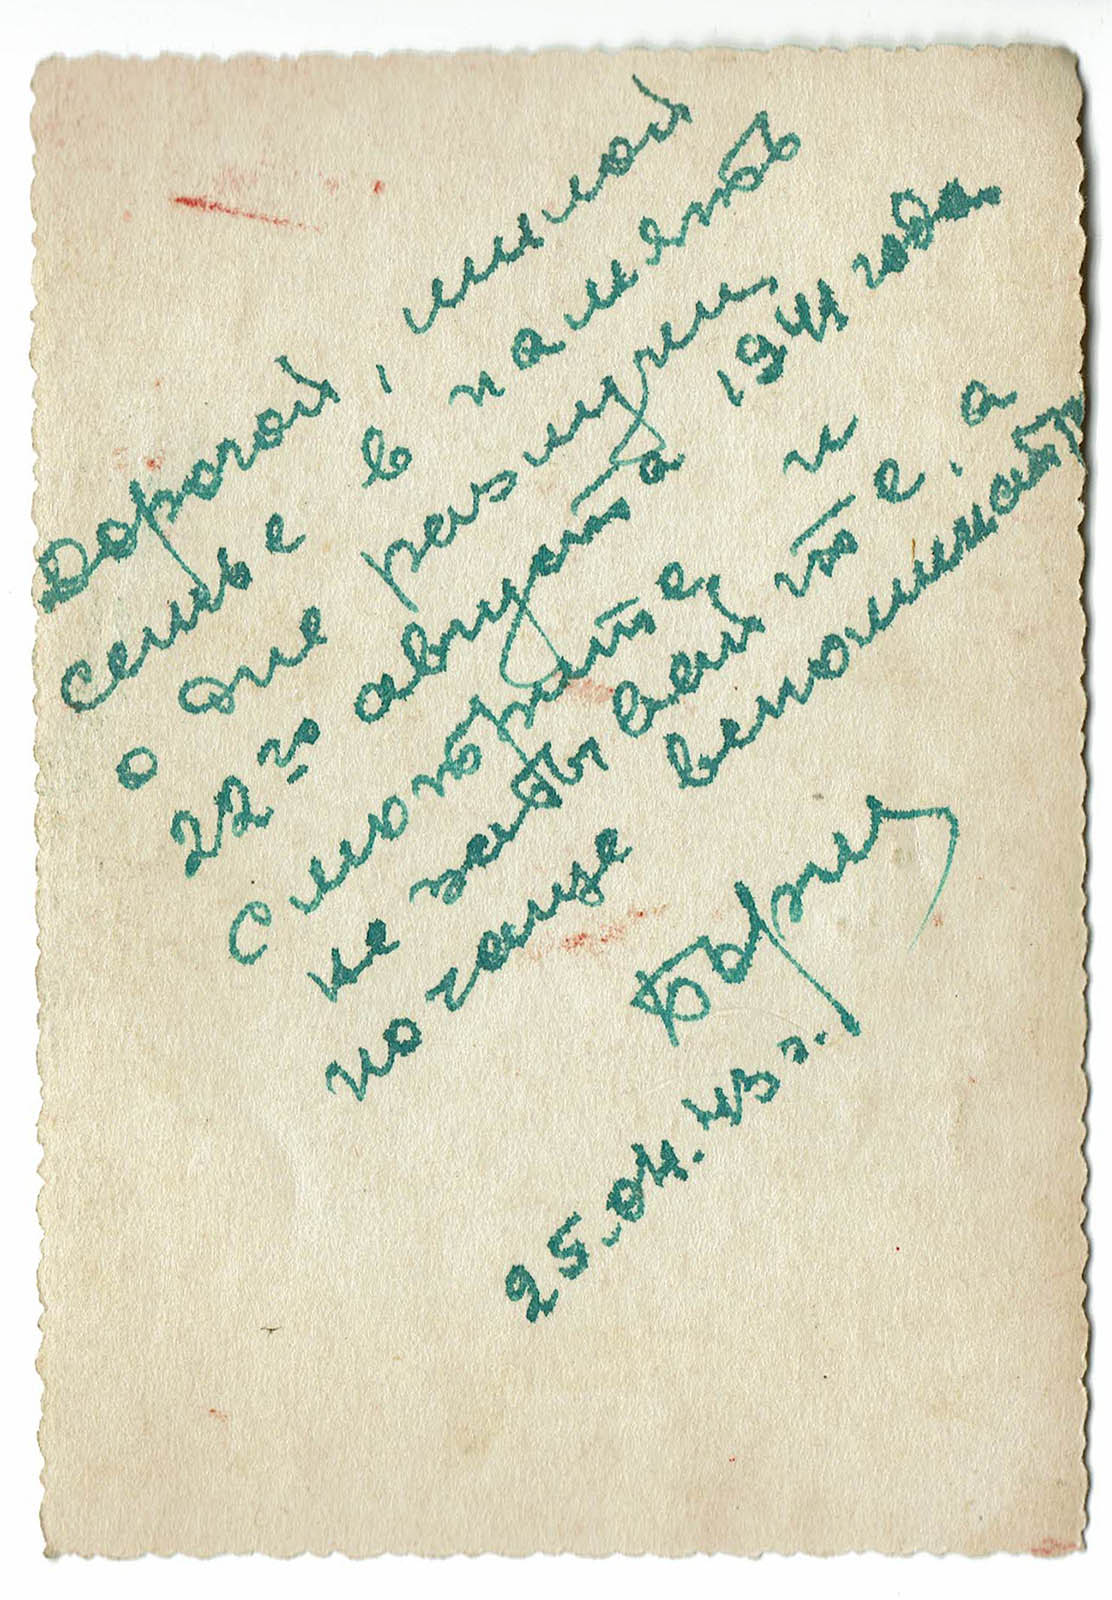 Дорогой, милой
семье в память
о дне разлуки
22го августа 1941 года.
Смотрите и
не забывайте, а
почаще вспоминать
Борис
25.04.43 г.